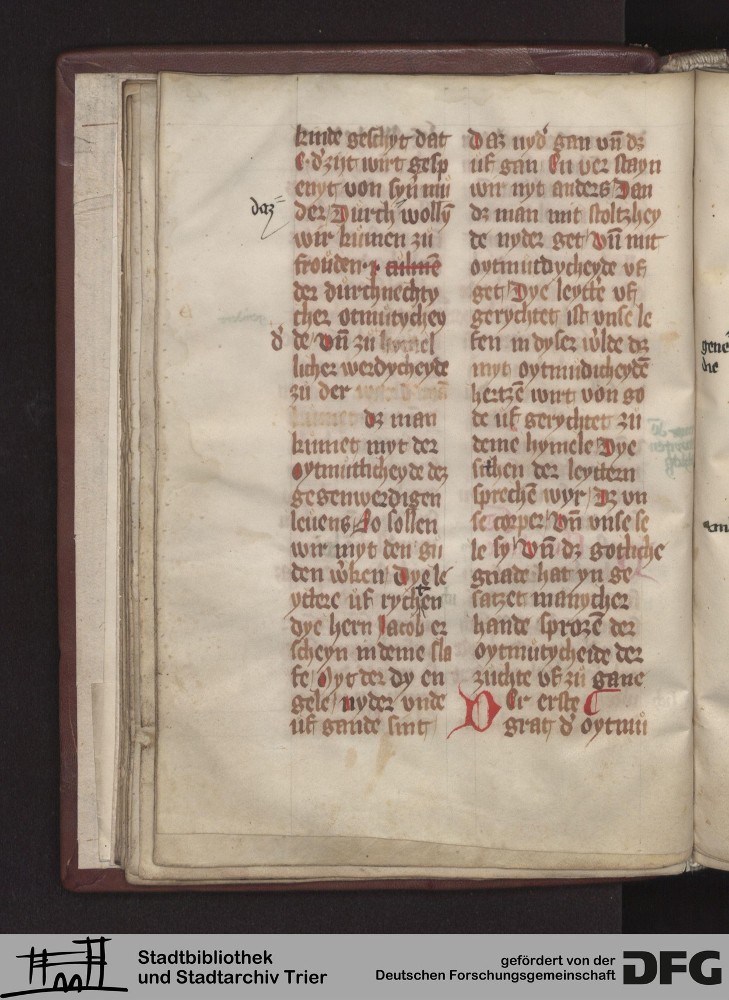 kinde geschyt dat
e· d'zijt wirt gesp
enyt von syn͛ mů
daz
der Durch wollȳ
wir kumen zü
fröuden·
der durchnechty
cher otmütychey
d'
de Vn̄ zü hymel
licher werdycheyde
zü der
dz man
kumet myt der
Oytmütlicheyde dez
gegenwerdigen
leuens So sollen
wir myt den gü
den w͛ken Dye le
yttere uf rychen
dye hern Jacob er
scheyn in deme sla
fe Myt der dy en
gele nyder vnde
uf gande sint
Daz nyd' gan vn̄ dz
uf gan En ver stayn
wir nyt anders Dan
dz man mit stoltzhey
de nyder get Vn̄ mit
oytmütdycheyde vf
get Dye leytte uf
gerychtet ist vnse le
fen in dyser w͛lde dz
myt oytmüdicheydē
hertzē wirt von go
de uf gerychtet zü
deme hymele Dye
sithen der leyttern
sprechē wyr Iz vn
se corper Vn̄ vnse se
le sy Vn̄ dz gotliche
gnade hat yn ge
satzet manycher
hande sprozē der
oytmütycheide der
züchte vf zü gane
Der erste
grat d' oytmů
gene
die
Stadtbibliothek
und Stadtarchiv Trier
gefördert von der
Deutschen Forschungsgemeinschaft
DFG